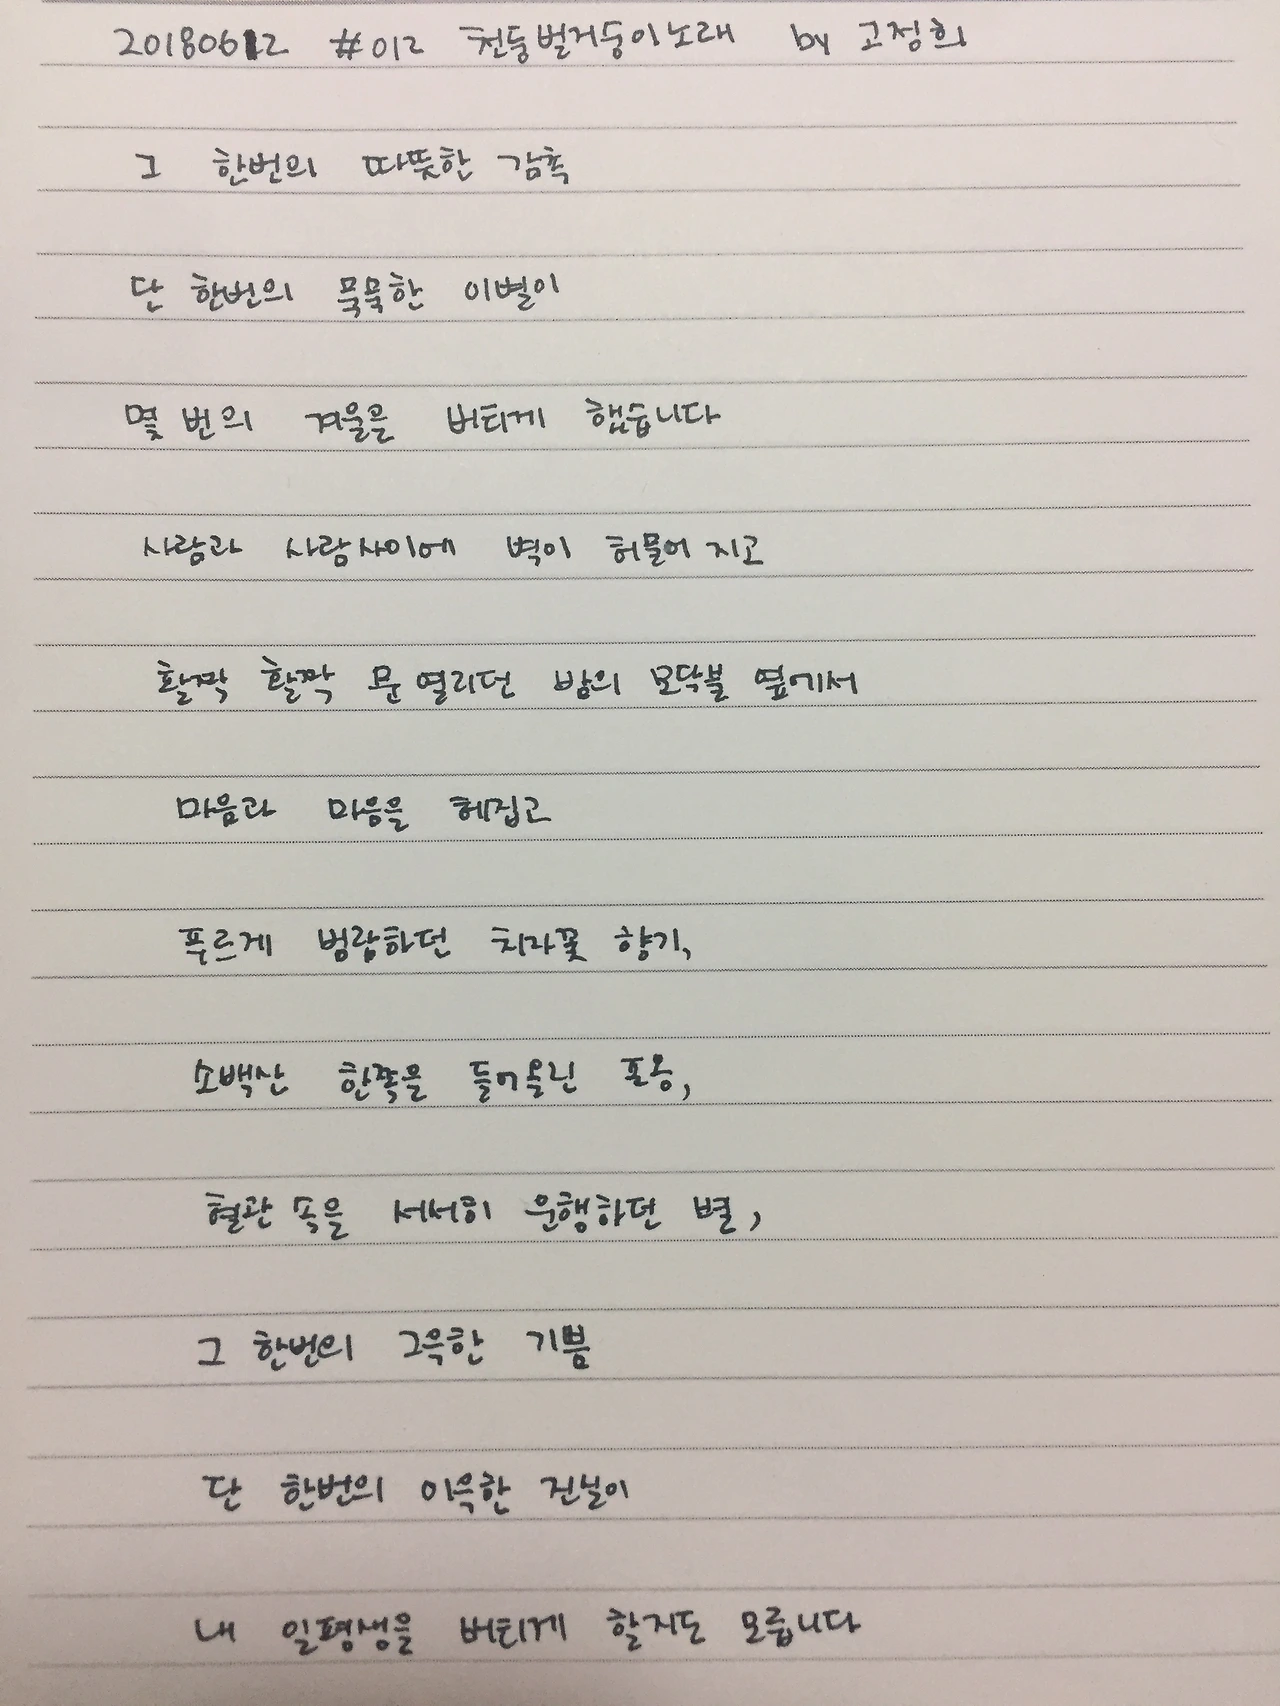 20180612 #012 천둥벌거둥이노래 by 고정희
그 한번의 따뜻한 감촉
단 한번의 묵묵한 이별이
몇 번의 겨울을 버티게 했습니다
사람과 사람사이에 벽이 허물어 지고
활짝 활짝 문 열리던 밤의 모닥불 옆에서
마음과 마음을 헤집고
푸르게 범람하던 치자꽃 향기,
소백산 한쪽을 들어올린 포옹,
혈관 속을 서서히 운행하던 별,
그 한번의 그윽한 기쁨
단 한번의 이윽한 진실이
내 일평생을 버티게 할지도 모릅니다